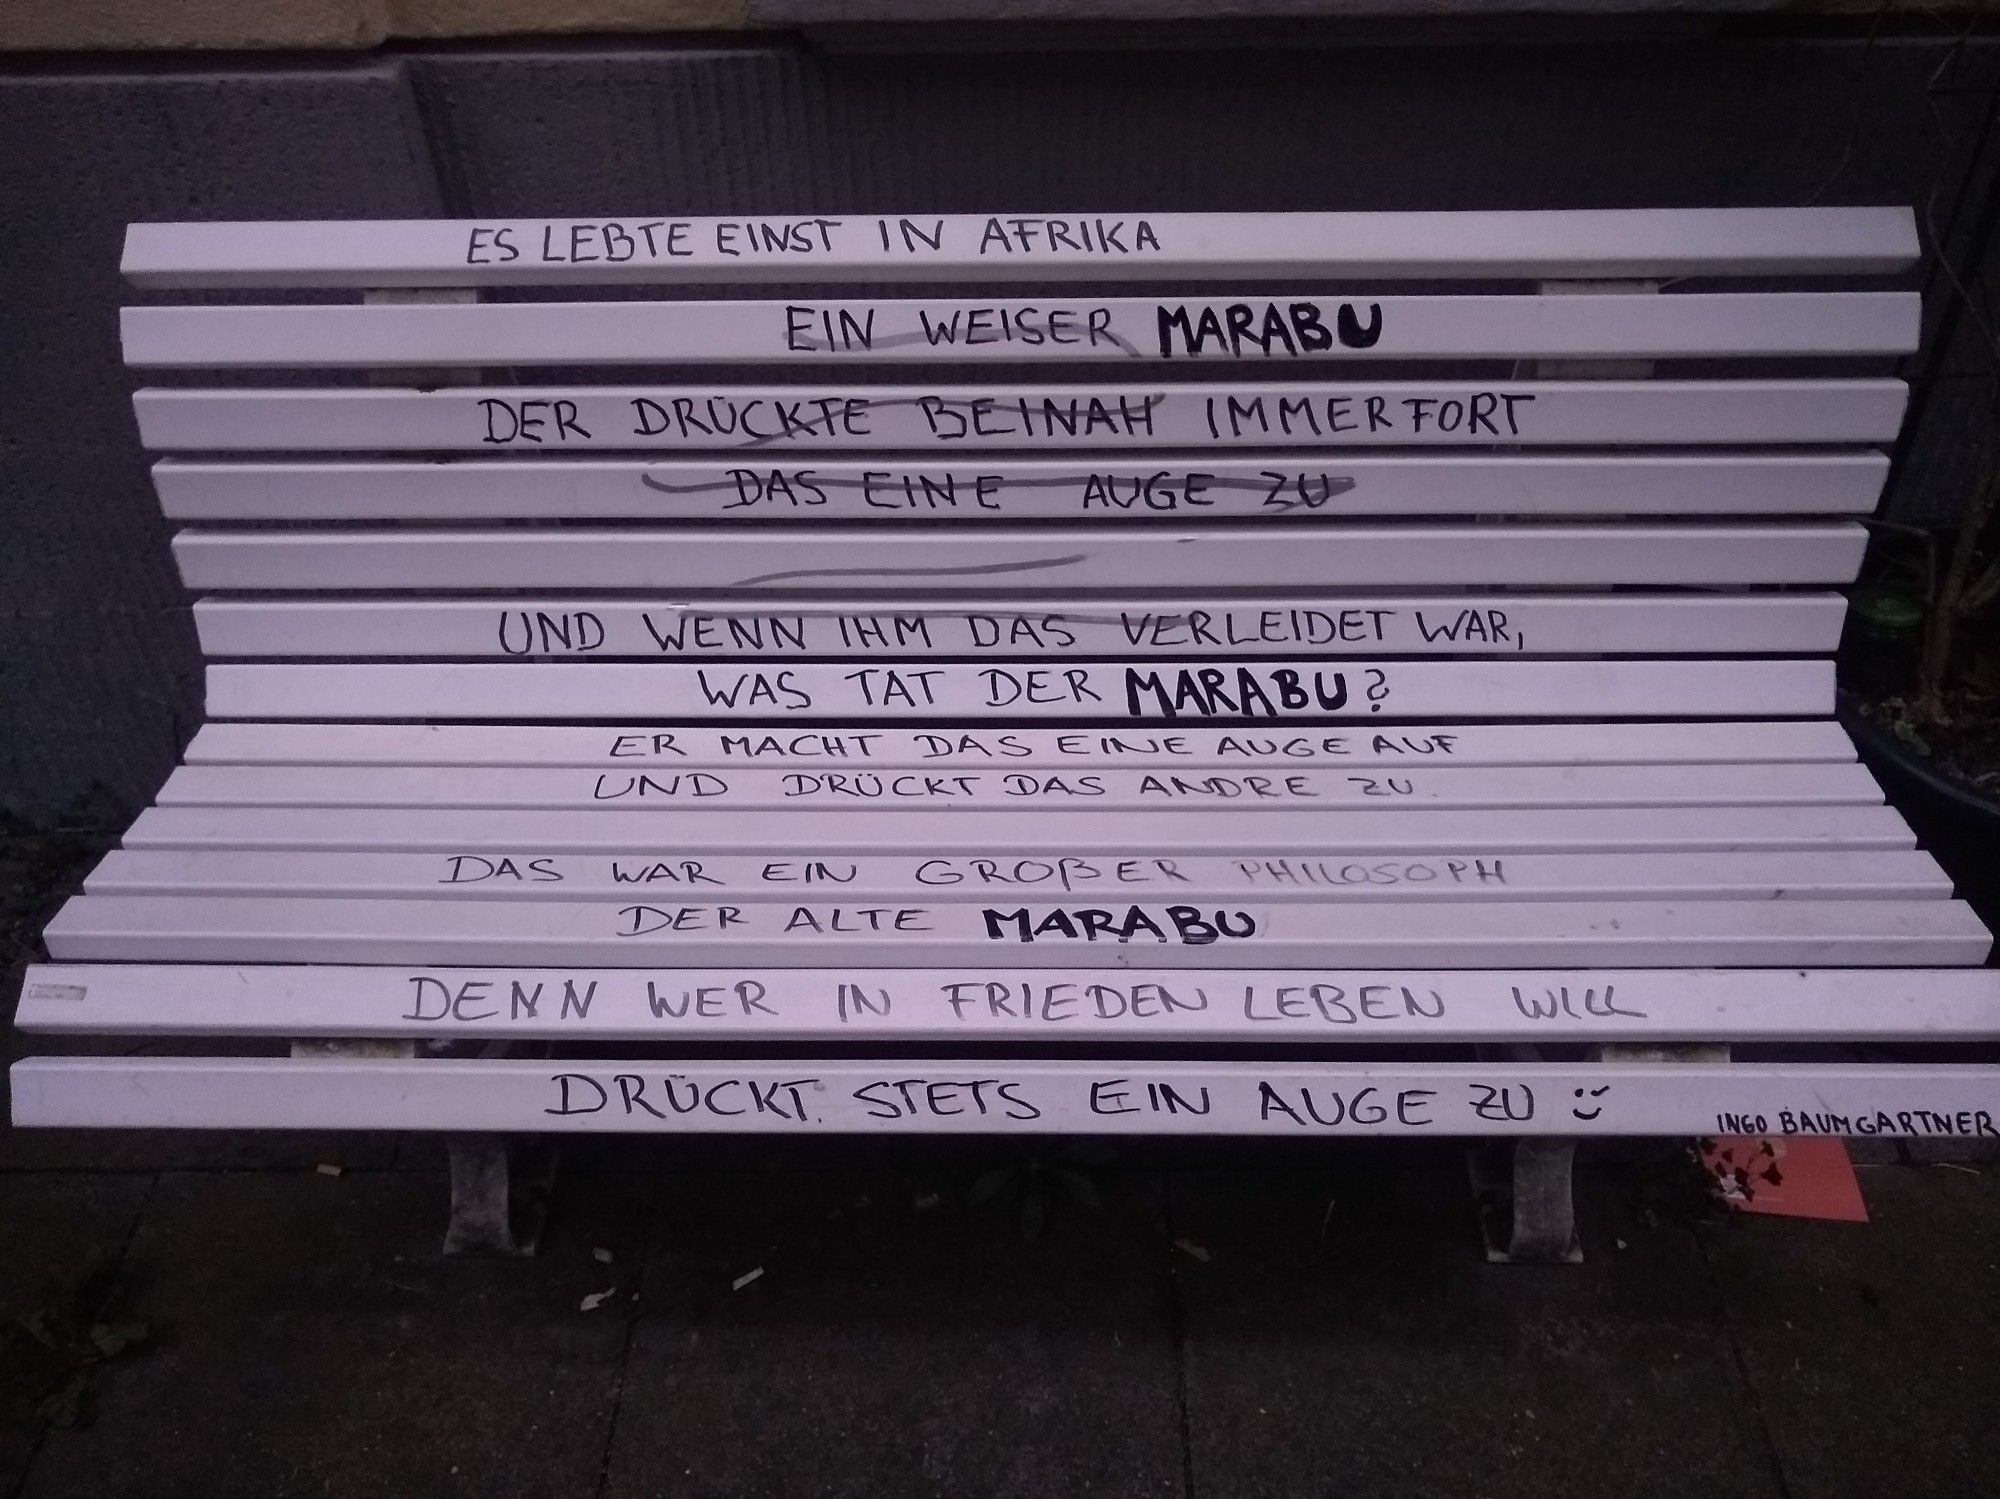 ES LEBTE EINST IN AFRIKA
EIN WEISER MARABU
DER DRÜCKTE BEINAH IMMERFORT
DAS EINE AUGE ZU
UND WENN IHM DAS VERLEIDET WAR,
WAS TAT DER MARABU?
ER MACHT DAS EINE AUGE AUF
UND DRÜCKT DAS ANDRE ZU.
DAS WAR EIN GROßER PHILOSOPH
DER ALTE MARABU
DENN WER IN FRIEDEN LEBEN WILL
DRÜCKT STETS EIN AUGE ZU
INGO BAUMGARTNER